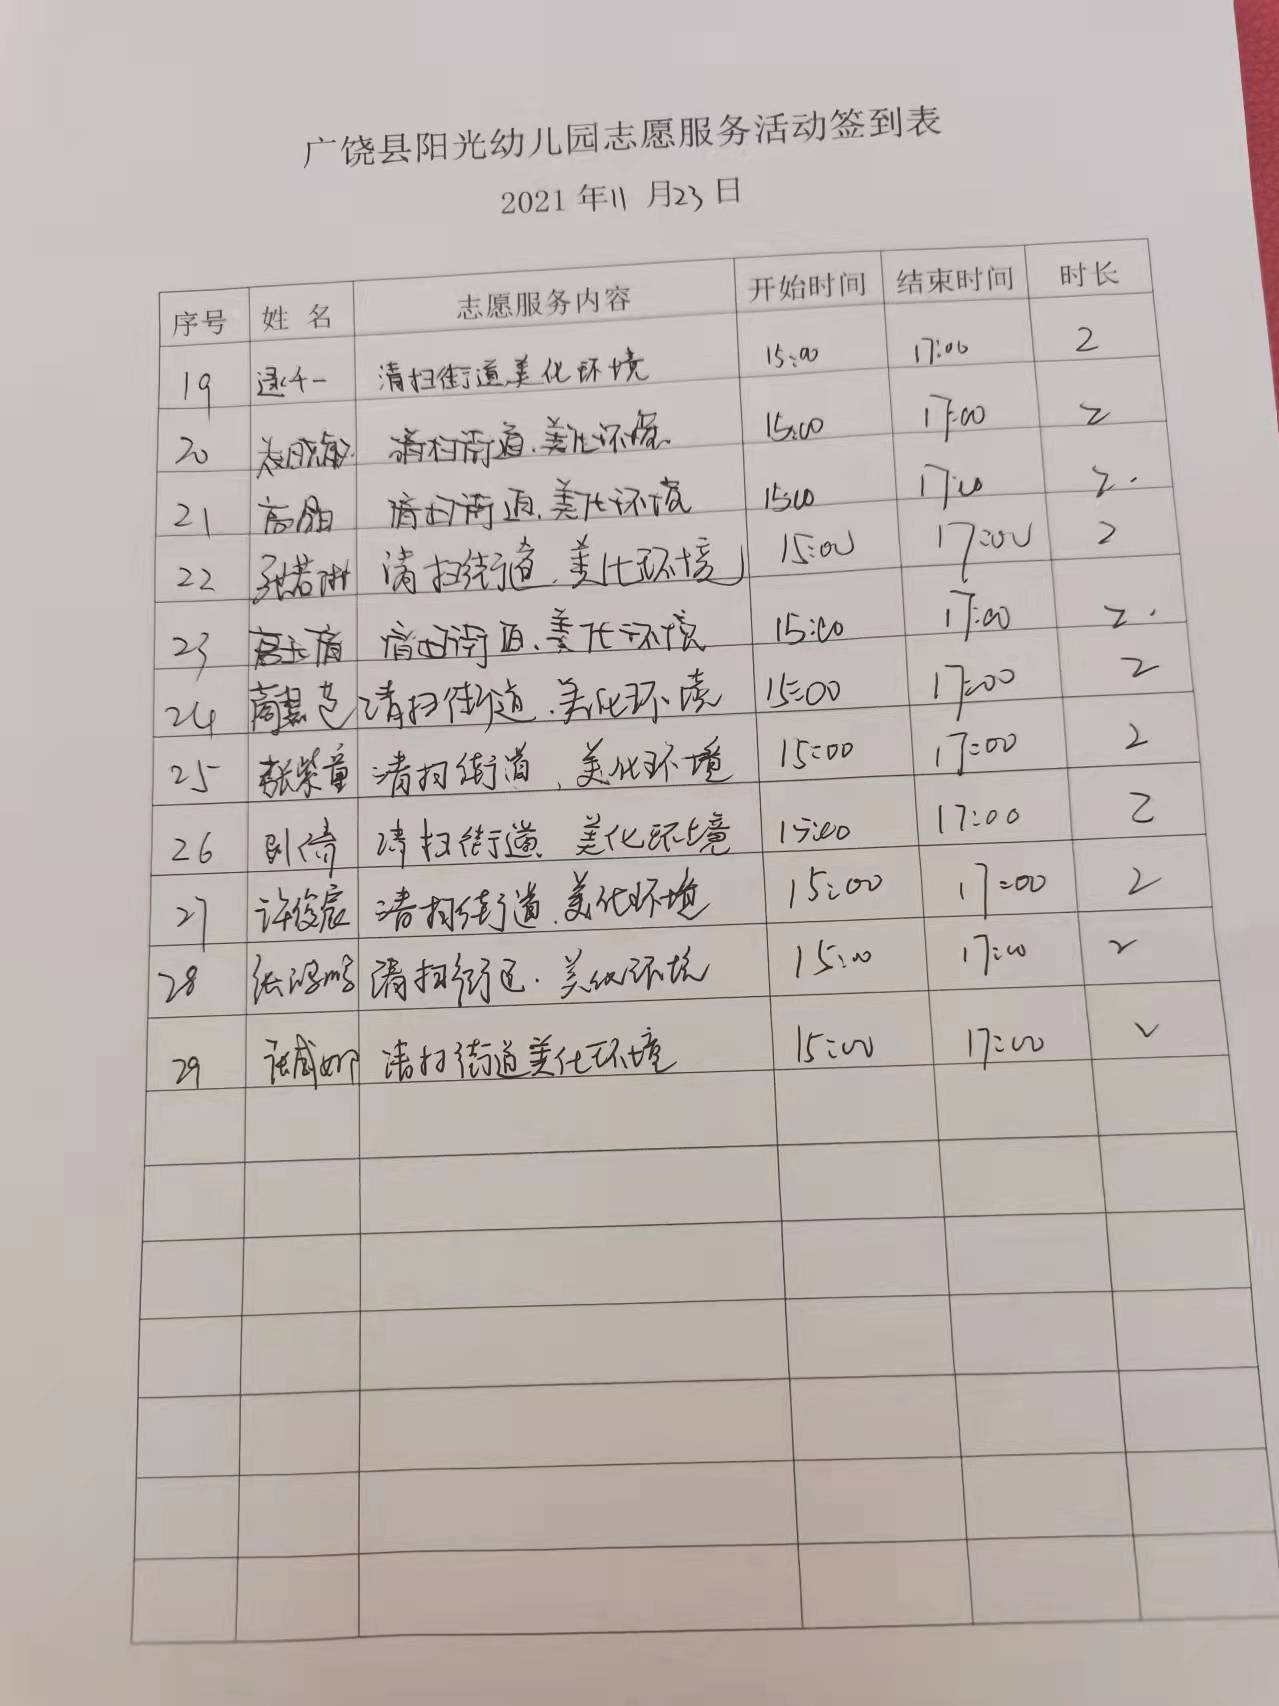 广饶县阳光幼儿园志愿服务活动签到表
2021 年11 月23 日
序号 姓 名 志愿服务内容 开始时间 结束时间 时长
19 清扫街道美化环境 15:00 17:00 2
20 清扫街道、美化环境 15:00 17:00 2
21 清扫街道、美化环境 15:00 17:00 2
22 清扫街道、美化环境 15:00 17:00 2
23 清扫街道、美化环境 15:00 17:00 2
24 清扫街道、美化环境 15:00 17:00 2
25 张紫童 清扫街道、美化环境 15:00 17:00 2
26 刘倩 清扫街道、美化环境 15:00 17:00 2
27 许俊宸 清扫街道、美化环境 15:00 17:00 2
28 清扫街道、美化环境 15:00 17:00 2
29 清扫街道美化环境 15:00 17:00 2